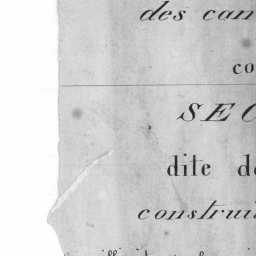 des can
co
SEC
dite de
construi